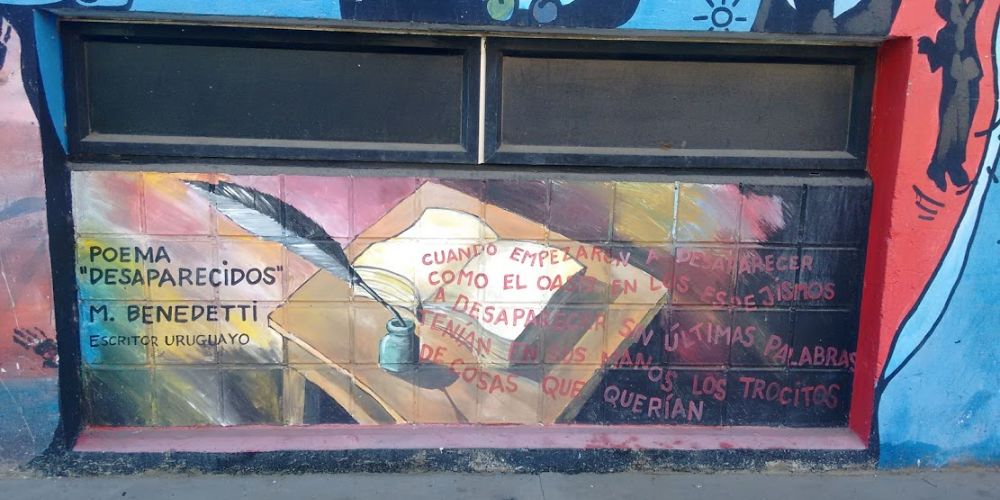 POEMA
"DESAPARECIDOS"
M. BENEDETTI
ESCRITOR URUGUAYO
CUANDO EMPEZARON A DESAPARECER
COMO EL OASIS EN LOS ESPEJISMOS
A DESAPARECER SIN ÚLTIMAS PALABRAS
TENÍAN EN SUS MANOS LOS TROCITOS
DE COSAS QUE QUERÍAN